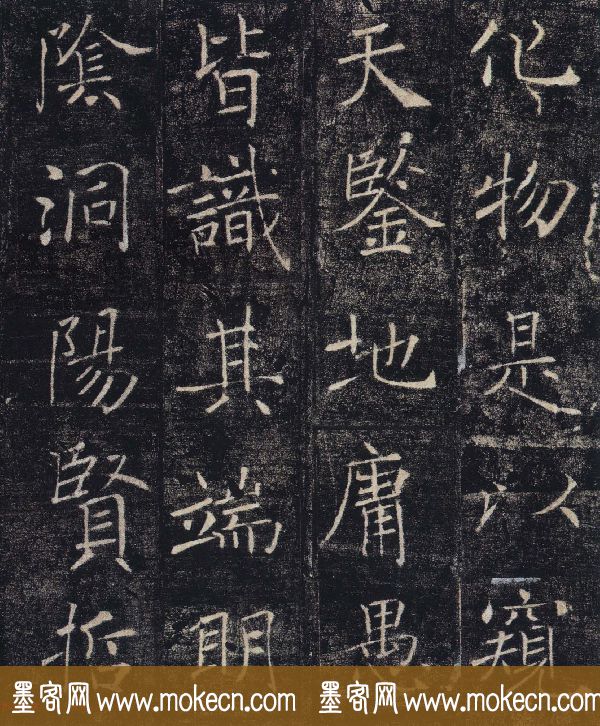 化物是以窺
天鑒地庸愚
皆識其端明
陰洞陽賢哲
墨客网 www.mokecn.com 墨客网 www.mokecn.com